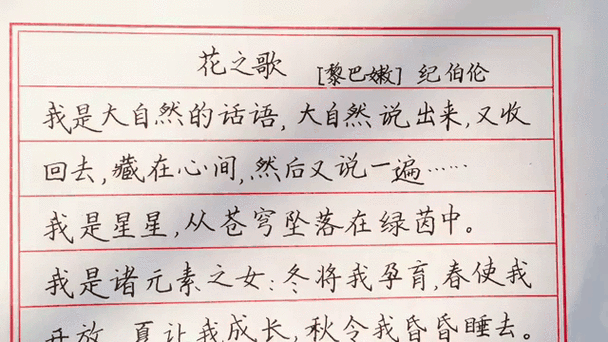 花之歌 [黎巴嫩] 纪伯伦
我是大自然的话语,大自然说出来,又收
回去,藏在心间,然后又说一遍……
我是星星,从苍穹坠落在绿茵中。
我是诸元素之女:冬将我孕育,春使我
开放,夏让我成长,秋令我昏昏睡去。